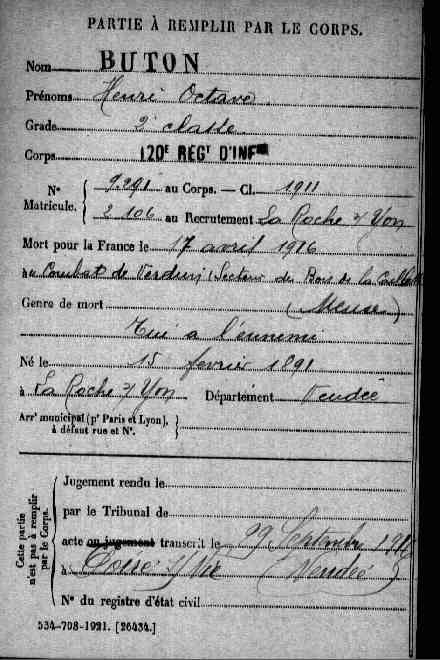 PARTIE À REMPLIR PAR LE CORPS.
Nom BUTON
Prénoms Henri Octave
Grade 2e classe
Corps 120E REGT D'INFie
No Matricule. { 9.291 au Corps. — Cl. 1911
2.106 au Recrutement La Roche s/ Yon
Mort pour la France le 17 avril 1916
à au Combat de Verdun (Secteur du Bois de la Caillette
(Meuse)
Genre de mort
Tué à l'ennemi
Né le 15 fevrier 1891
à La Roche s/ Yon Département Vendée
Arrt municipal (pr Paris et Lyon), }
à défaut rue et No.
Cette partie n'est pas à remplir par le Corps.
Jugement rendu le
par le Tribunal de
acte ou jugement transcrit le 29 Septembre
à s/ Vie (Vendée)
No du registre d'état civil
534-708-1921. [26434.]